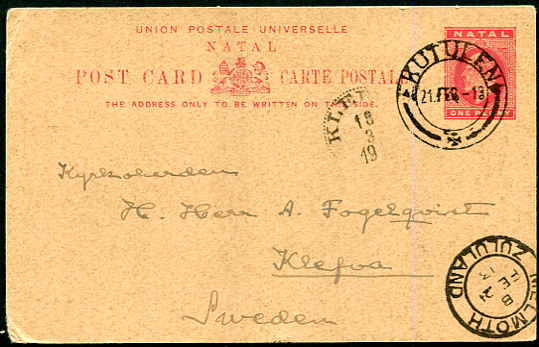 UNION POSTALE UNIVERSELLE
NATAL
POST CARD CARTE POSTAL
THE ADDRESS ONLY TO BE WRITTEN ON THIS SIDE.
NATAL
ONE PENNY
KUTULEN
21 FEB -13
KLEF
18
3
19
Kyrkoherden
H. Herr A. Fogelqvist
Klefva
Sweden
MELMOTH
ZULULAND
FE
13